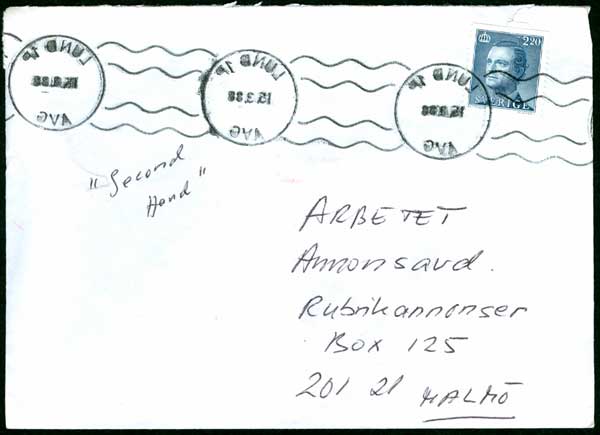 LUND 1P
15.3.88
AVG
LUND 1P
15.3.88
AVG
LUND 1P
15.3.88
AVG
2.20
SVERIGE
"Second
Hand"
ARBETET
Annonsavd.
Rubrikannonser
Box 125
201 21 MALMÖ